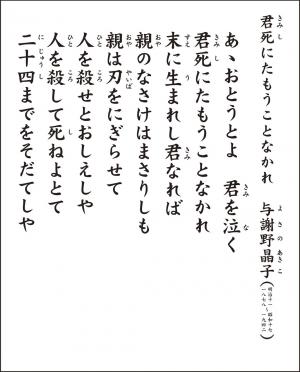 君死にたもうことなかれ 与謝野晶子(明治十一~昭和十七 一八七八~一九四二)
あゝおとうとよ 君を泣く
君死にたもうことなかれ
末に生まれし君なれば
親のなさけはまさりしも
親は刃をにぎらせて
人を殺せとおしえしや
人を殺して死ねよとて
二十四までをそだてしや